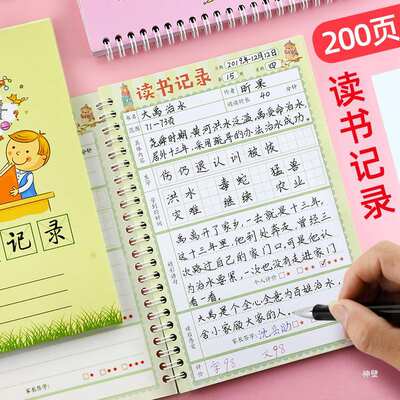 200页
读书记录
读书记录
日期 2019年12月12日
第 15 周 星期 四
书名 大禹治水
作者 昕果
页码 71-73页
阅读时长 40 分钟
尧舜时期,黄河洪水泛滥,禹受命治水,
居外十三年,采用疏导的办法治水成功。
伤 仍 退 认 训 被 恢
洪水 毒蛇 猛兽
灾难 继续 农业
禹离开了家乡,一去就是十三年,
这十三年里,他到处奔走,曾经三
次路过自己的家门口,可是他认
为治水要紧,一次也没有走进家门
看一看。
个人评价
大禹是个全心全意为百姓治水,
舍小家顾大家的人。
家长签字:
字98 文98
记录
分钟
个人评价
家长签字:
神壁